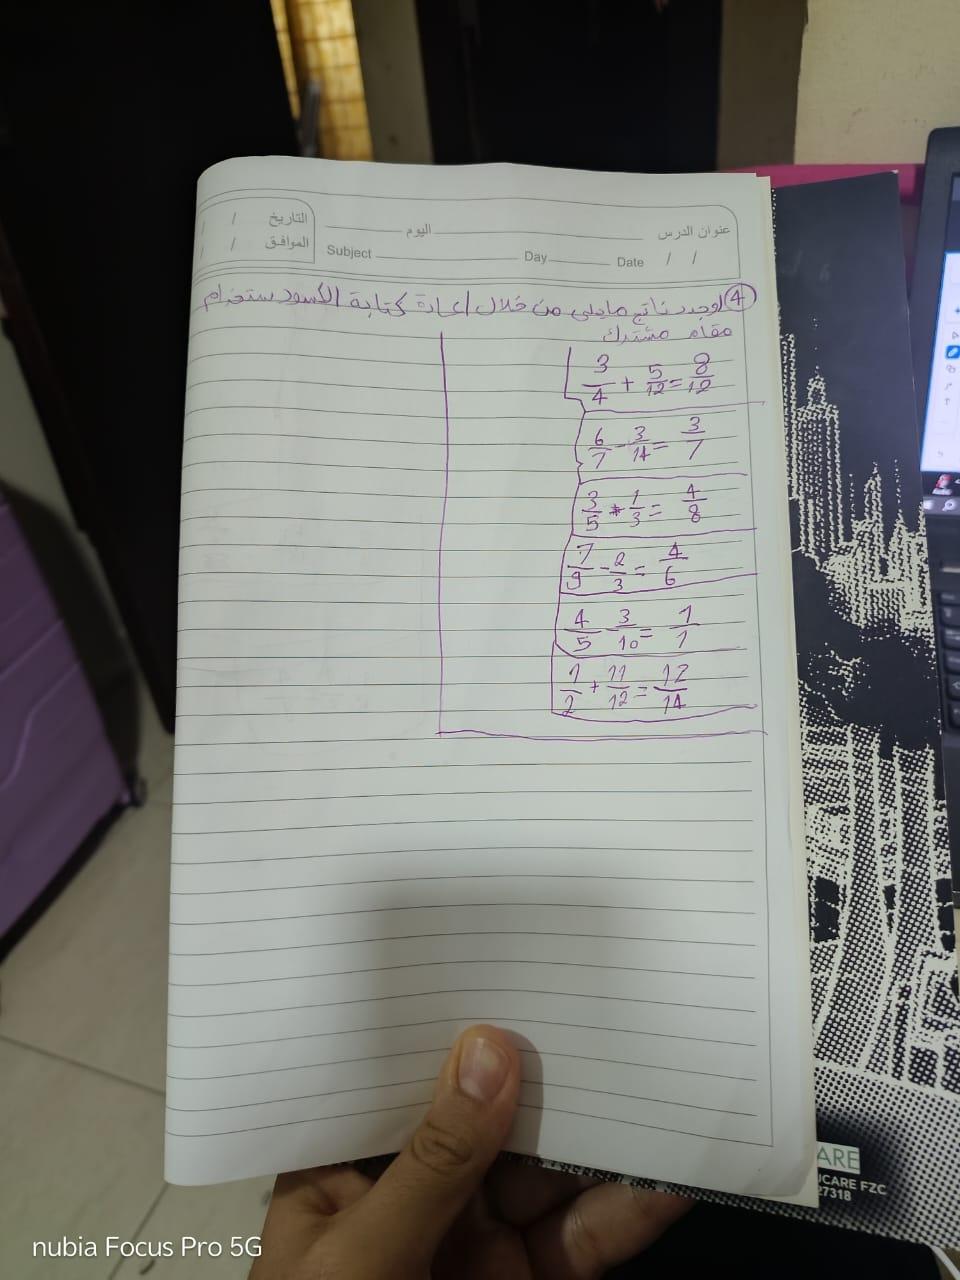 عنوان الدرس اليوم التاريخ / /
Subject Day Date / / الموافق / /
4 اوجد ناتج مايلي من خلال اعادة كتابة الكسود ستخدام
مقام مشترك
3/4 + 5/12 = 8/12
6/7 - 3/14 = 3/7
3/5 + 1/3 = 4/8
7/9 - 2/3 = 4/6
4/5 - 3/10 = 1/1
1/2 + 11/12 = 12/14
ARE
UCARE FZC
27318
nubia Focus Pro 5G